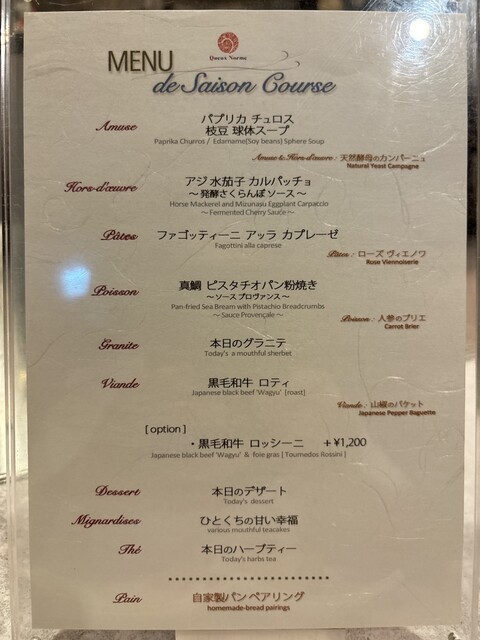 Queux Norme
MENU
de Saison Course
Amuse
パプリカ チュロス
枝豆 球体スープ
Paprika Churros / Edamame(Soy beans) Sphere Soup
Amuse & Hors-d'œuvre : 天然酵母のカンパーニュ
Natural Yeast Campagne
Hors-d'œuvre
アジ 水茄子 カルパッチョ
～ 発酵さくらんぼ ソース ～
Horse Mackerel and Mizunasu Eggplant Carpaccio
～ Fermented Cherry Sauce ～
Pâtes
ファゴッティーニ アッラ カプレーゼ
Fagottini alla caprese
Pâtes : ローズ ヴィエノワ
Rose Viennoiserie
Poisson
真鯛 ピスタチオパン粉焼き
～ ソース プロヴァンス ～
Pan-fried Sea Bream with Pistachio Breadcrumbs
～ Sauce Provençale ～
Poisson : 人参のブリエ
Carrot Brier
Granite
本日のグラニテ
Today's a mouthful sherbet
Viande
黒毛和牛 ロティ
Japanese black beef 'Wagyu' [roast]
Viande : 山椒のバケット
Japanese Pepper Baguette
[ option ]
・黒毛和牛 ロッシーニ ＋ ¥1,200
Japanese black beef 'Wagyu' & foie gras [ Tournedos Rossini ]
Dessert
本日のデザート
Today's dessert
Mignardises
ひとくちの甘い幸福
various mouthful teacakes
Thé
本日のハーブティー
Today's harbs tea
Pain
自家製パン ペアリング
homemade-bread pairings